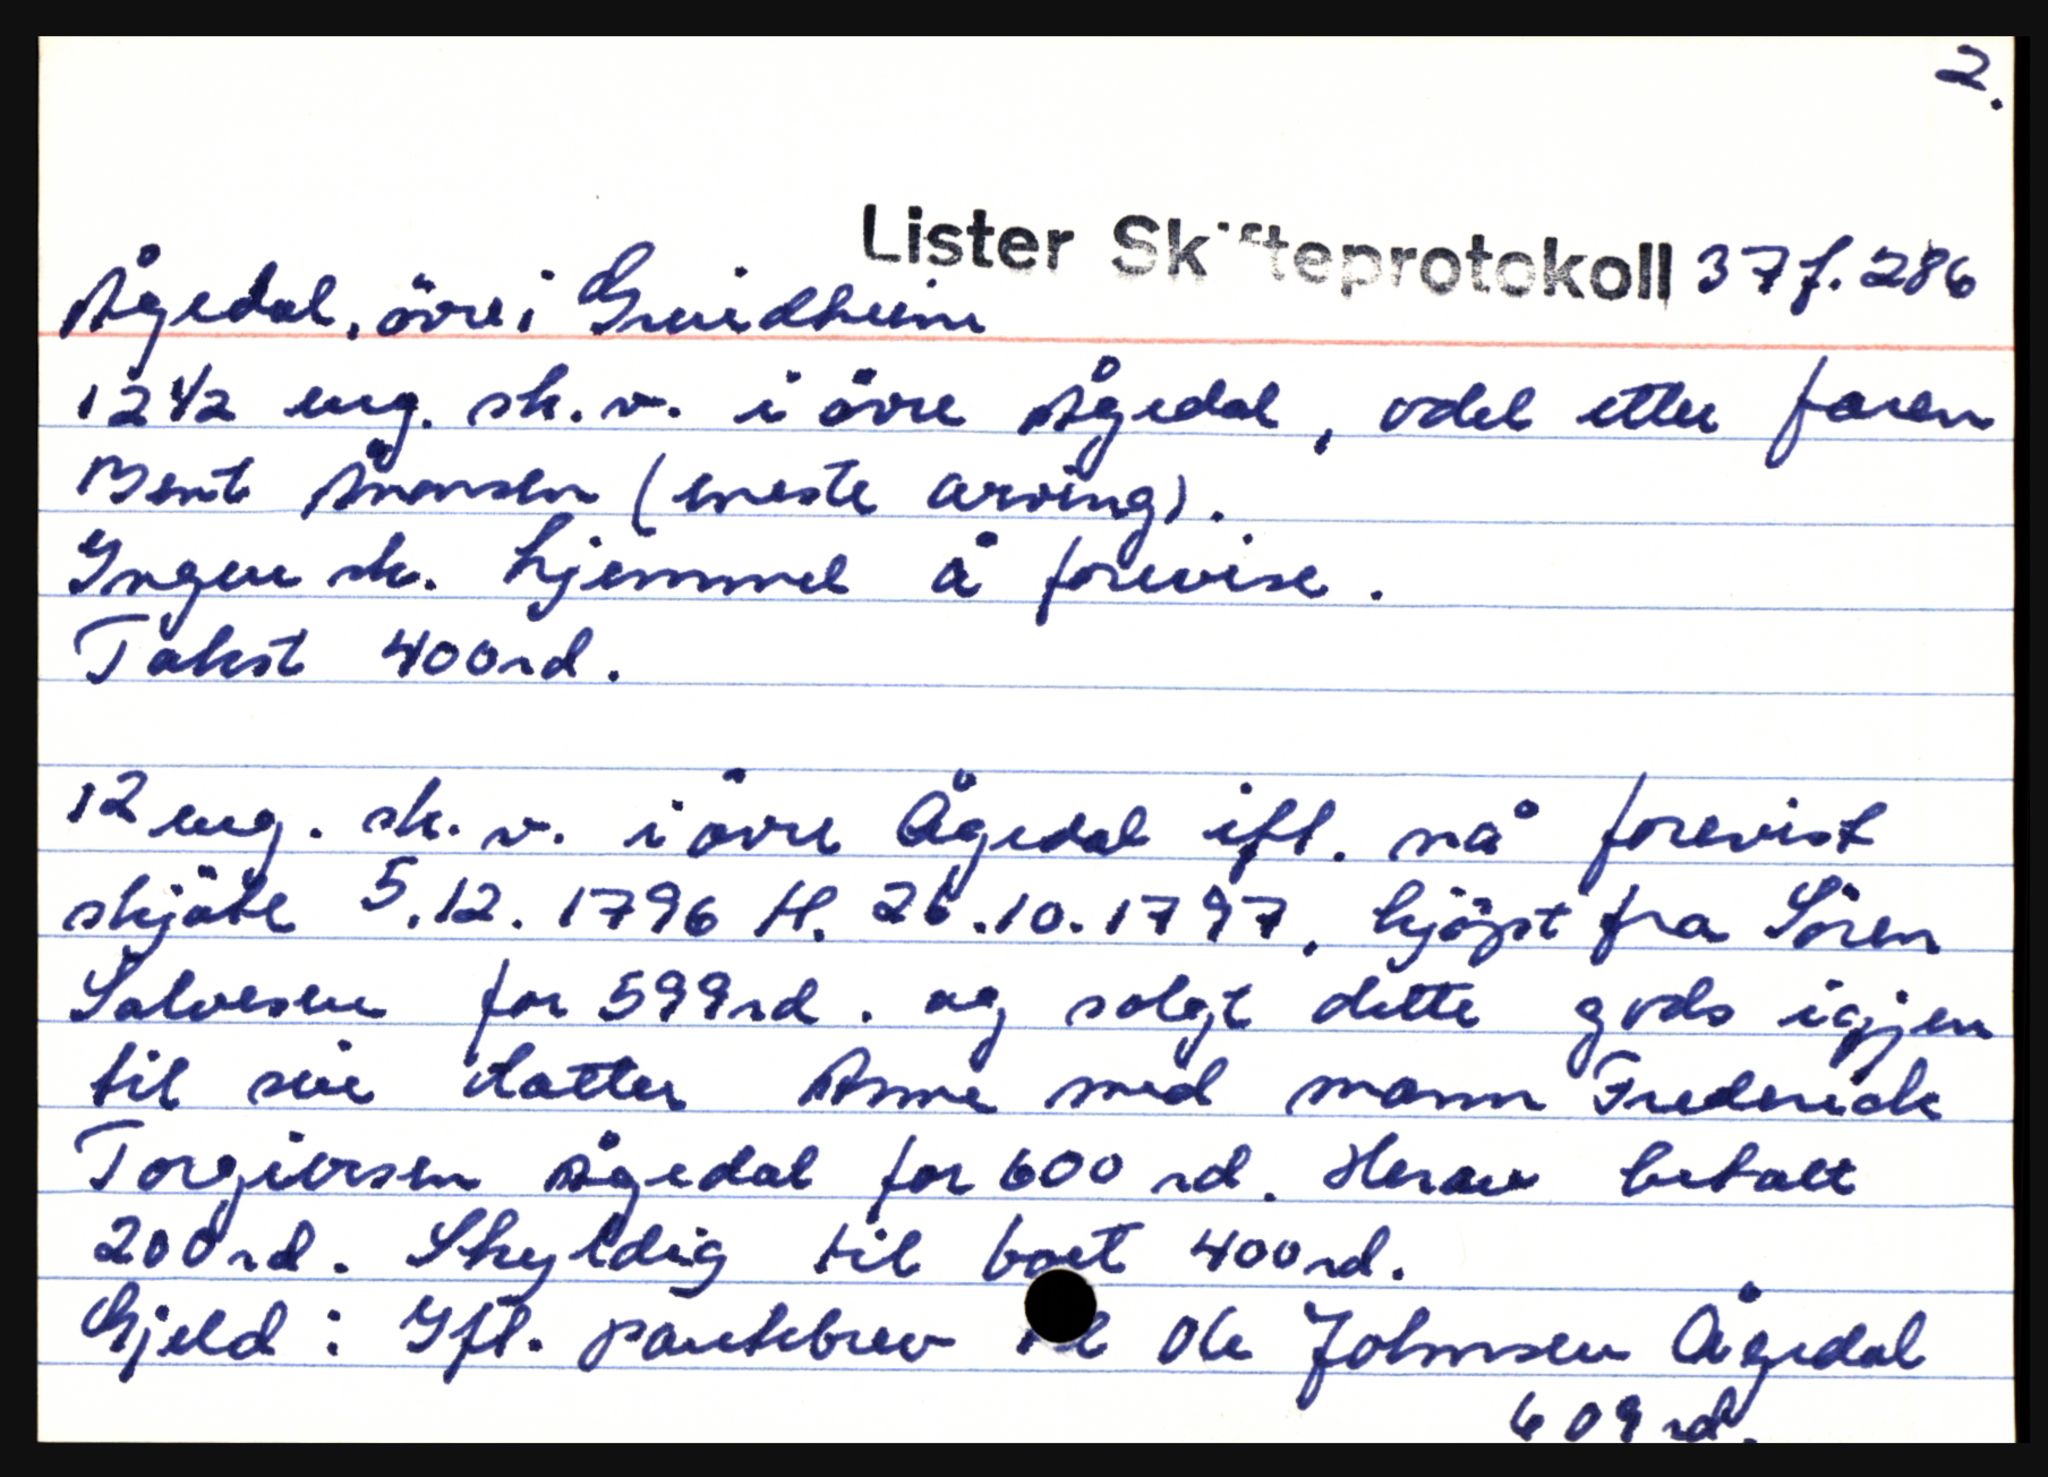 2.
Lister Skifteprotokoll 37 f. 286
Ågedal, övre i Grindheim
12 1/2 eng. sk. v. i övre Ågedal, odel etter faren
Bent Ånonsen (eneste arving).
Ingen sk. hjemmel å forevise.
Takst 400 rd.
12 eng. sk. v. i övre Ågedal ifl. nå forevist
skjöte 5.12.1796 tl. 26.10.1797, kjöpt fra Sören
Salvesen for 599 rd. og solgt dette gods igjen
til sin datter Anne med mann Frederick
Torgiersen Ågedal for 600 rd. Herav betalt
200 rd. Skyldig til boet 400 rd.
Gjeld: Ifl. pantebrev til Ole Johnsen Ågedal
609 rd.